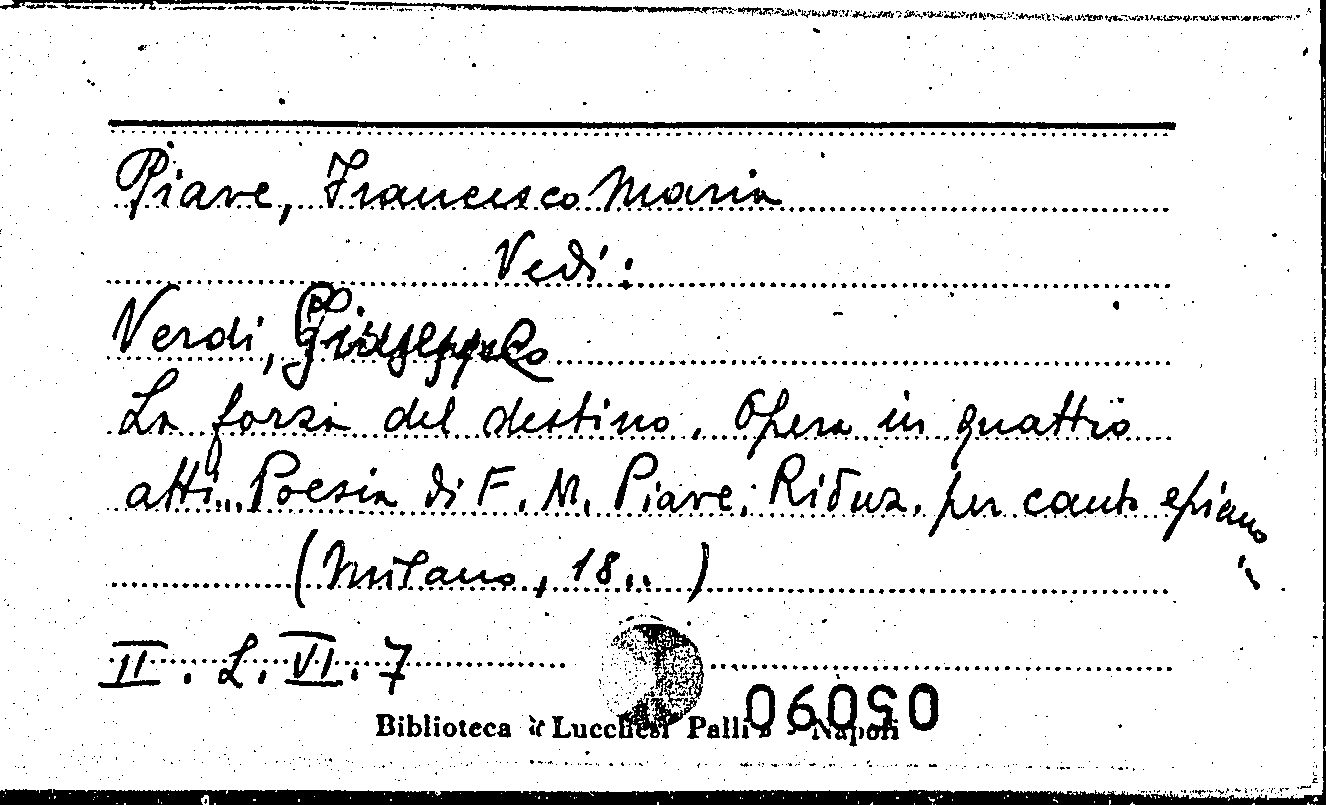 Piave, Francesco Maria
Vedi:
Verdi, Giuseppe
La forza del destino. Opera in quattro
atti.. Poesia di F. M. Piave. Riduz. per canto e piano
(Milano, 18..)
II. L. VI. 7
Biblioteca "Lucchesi Palli" - Napoli